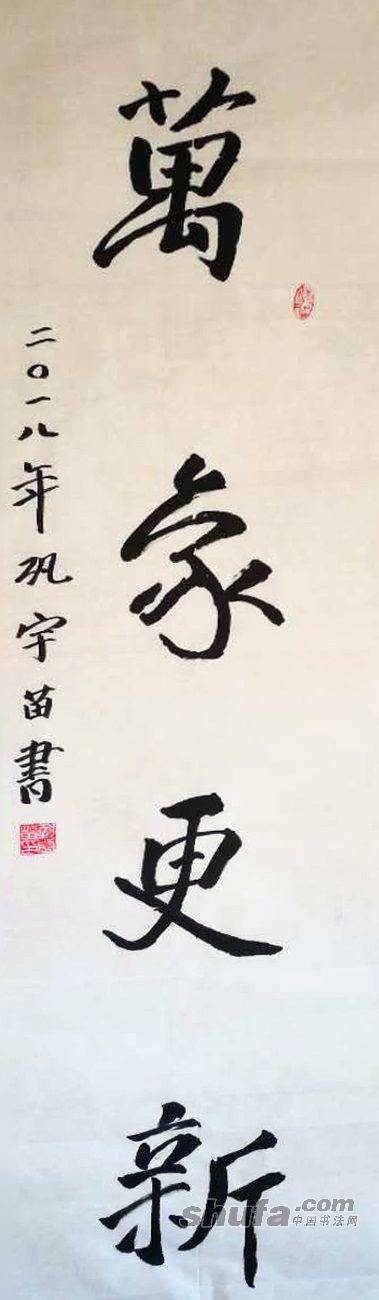 萬象更新
二〇一八年巩宇苗書
shufa.com
中国书法网